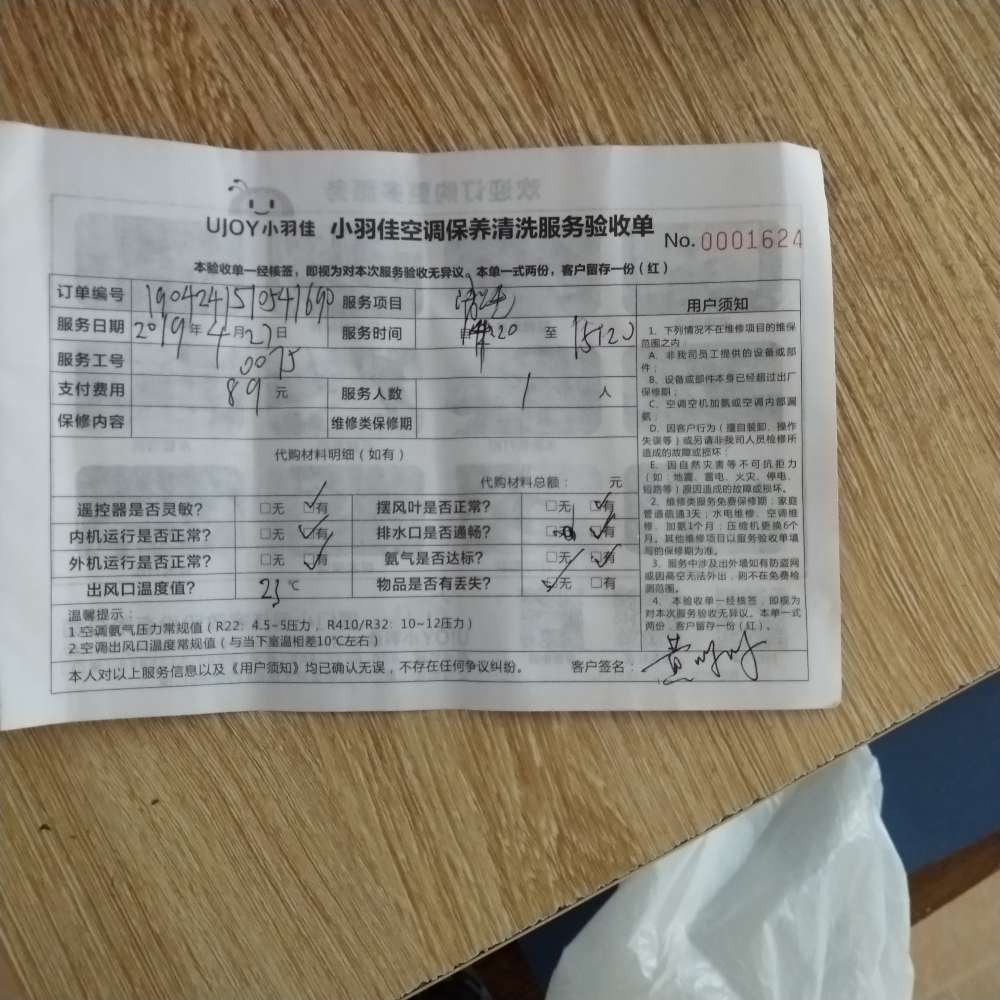 UJOY小羽佳 小羽佳空调保养清洗服务验收单 No.0001624
本验收单一经核签，即视为对本次服务验收无异议。本单一式两份，客户留存一份（红）
订单编号 1904241510541690 服务项目 清洗
服务日期 2019年4月27日 服务时间 20 至 15:20
服务工号 0075
支付费用 89 元 服务人数 1 人
保修内容 维修类保修期
代购材料明细（如有）
代购材料总额： 元
遥控器是否灵敏？ □无 □有 摆风叶是否正常？ □无 □有
内机运行是否正常？ □无 □有 排水口是否通畅？ □有
外机运行是否正常？ □无 □有 氨气是否达标？ □无 □有
出风口温度值？ 23 ℃ 物品是否有丢失？ □无 □有
温馨提示：
1.空调氨气压力常规值（R22: 4.5~5压力，R410/R32: 10~12压力）
2.空调出风口温度常规值（与当下室温相差10℃左右）
本人对以上服务信息以及《用户须知》均已确认无误，不存在任何争议纠纷。 客户签名： 黄
用户须知
1、下列情况不在维修项目的维保
范围之内：
A、非我司员工提供的设备或部
件；
B、设备或部件本身已经超过出厂
保修期；
C、空调空机加氨或空调内部漏
氨；
D、因客户行为（擅自装卸、操作
失误等）或另请非我司人员检修所
造成的故障或损坏；
E、因自然灾害等不可抗拒力
（如：地震、蓄电、火灾、停电、
短路等）原因造成的故障或损坏。
2、维修类服务免费保修期：家庭
管道疏通3天；水电维修、空调维
修、加氨1个月；压缩机更换6个
月。其他维修项目以服务验收单填
写的保修期为准。
3、服务中涉及出外墙如有防盗网
或因高空无法外出，则不在免费检
测范围。
4、本验收单一经核签，即视为
对本次服务验收无异议。本单一式
两份，客户留存一份（红）。